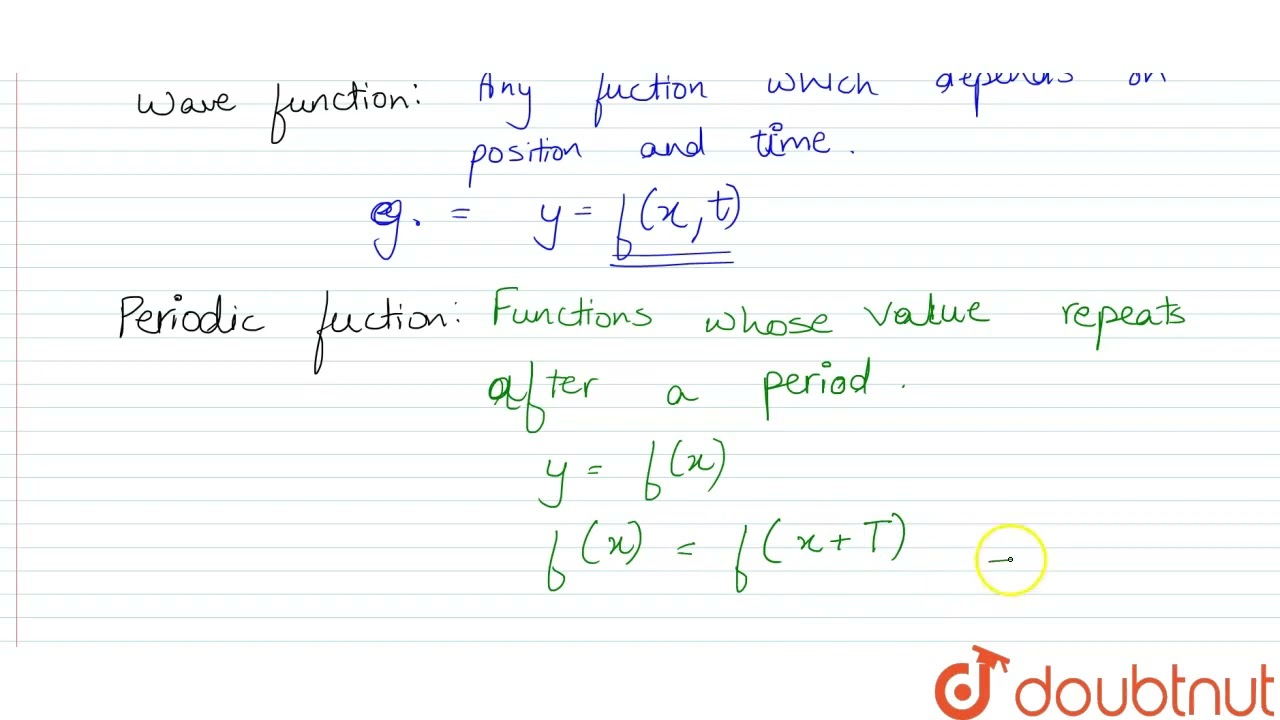 Wave function: Any fuction which depends on
position and time.
eg. = y = f(x,t)
Periodic fuction: Functions whose value repeats
after a period.
y = f(x)
f(x) = f(x+T) —
doubtnut